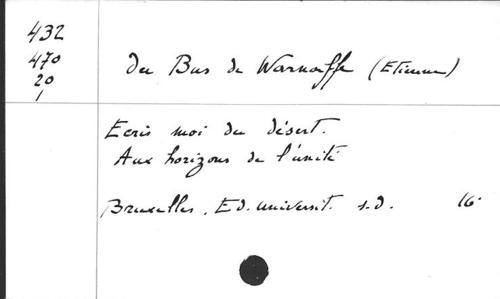 432
470
20
1
du Bus de Warnaffe (Etienne)
Ecris moi du désert.
Aux horizons de l'unité
Bruxelles, Ed. Universit. s.d. 16°